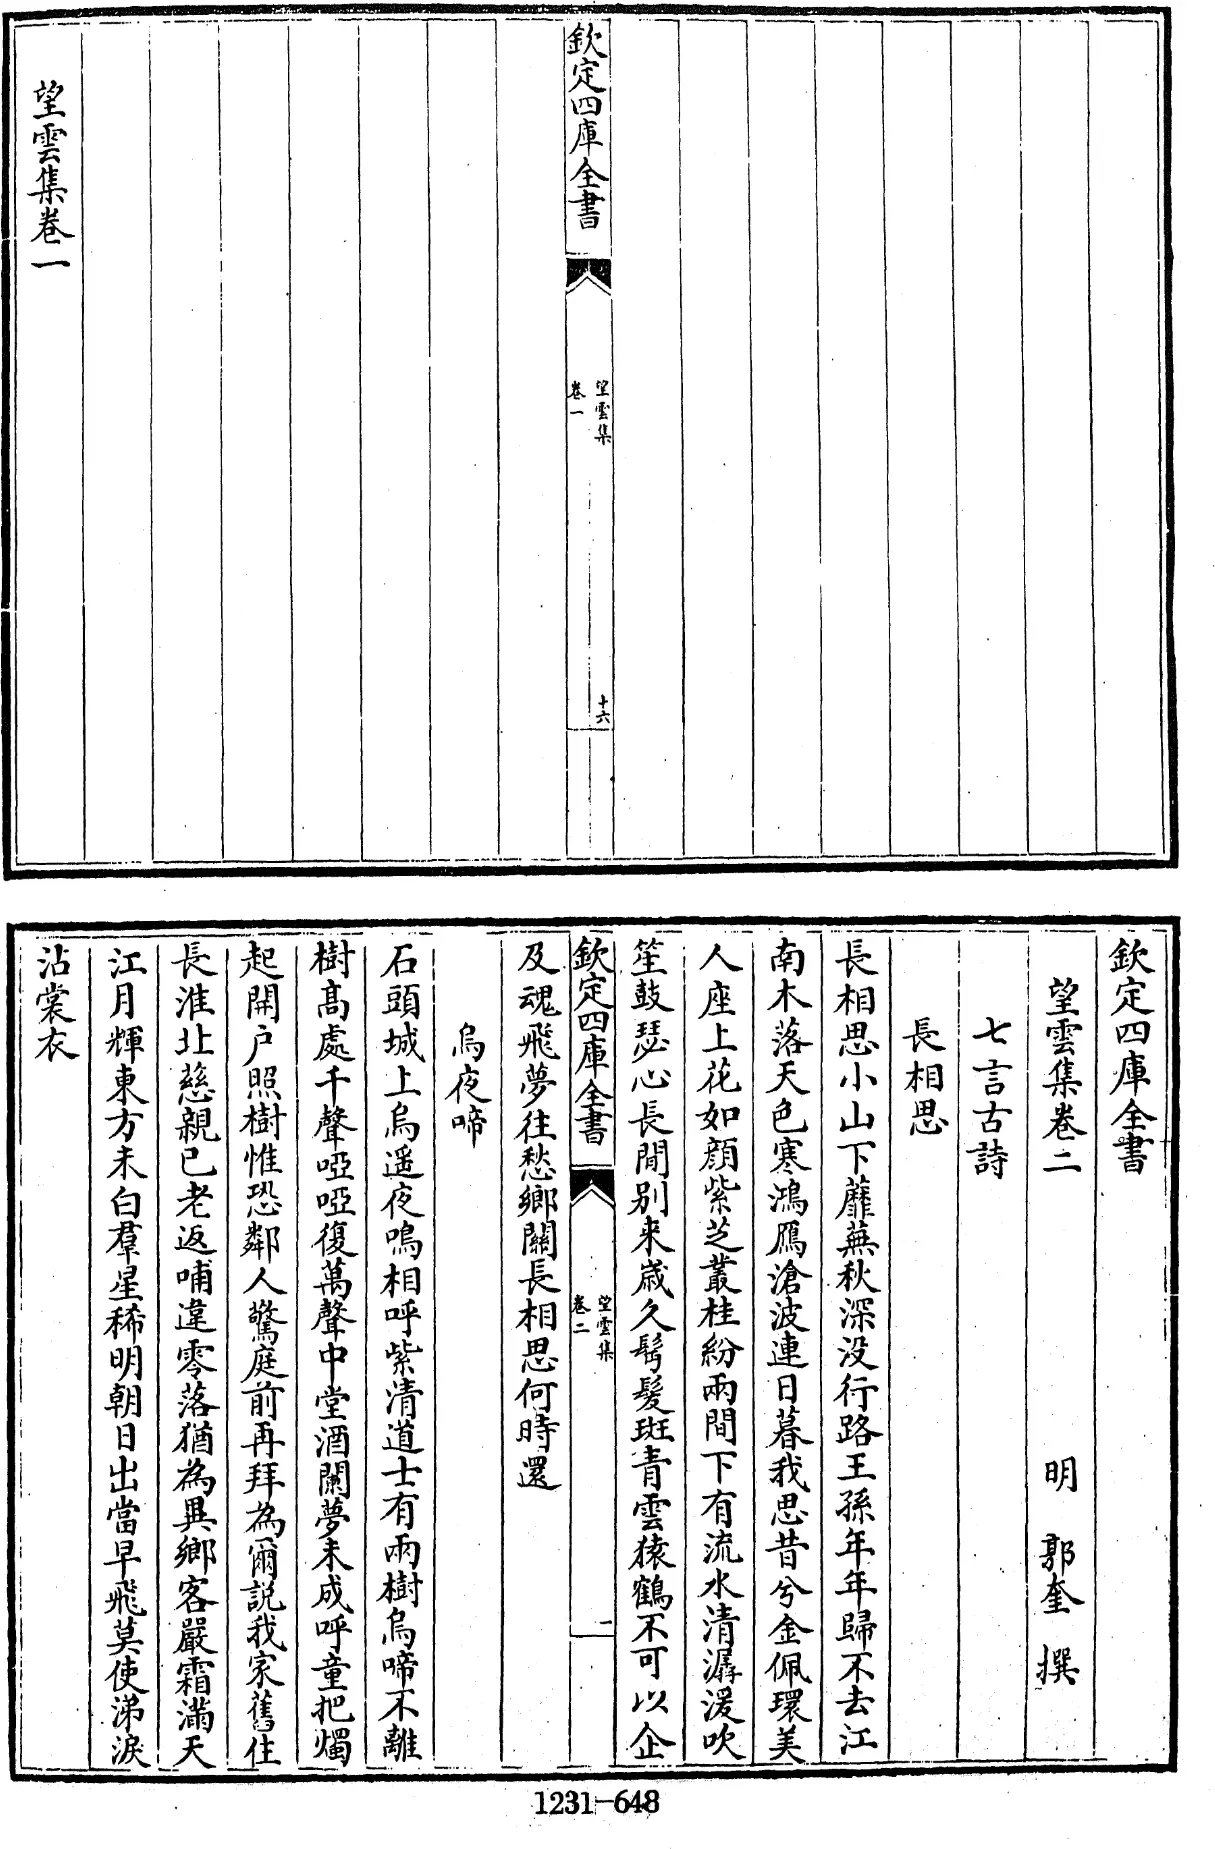 欽定四庫全書
望雲集
卷一
十六
望雲集卷一
欽定四庫全書
望雲集卷二
明　郭奎　撰
七言古詩
長相思
長相思小山下蘼蕪秋深没行路王孫年年歸不去江
南木落天色寒鴻鴈滄波連日暮我思昔兮金佩環美
人座上花如顔紫芝叢桂紛兩間下有流水清潺湲吹
笙鼓瑟心長閒别來歳久髩髪斑青雲猿鶴不可以企
欽定四庫全書
望雲集
卷二
一
及魂飛夢往愁鄉關長相思何時還
烏夜啼
石頭城上烏遥夜鳴相呼紫清道士有兩樹烏啼不離
樹髙處千聲啞啞復萬聲中堂酒闌夢未成呼童把燭
起開户照樹惟恐鄰人驚庭前再拜為爾説我家舊住
長淮北慈親已老返哺違零落猶為異鄉客嚴霜滿天
江月輝東方未白羣星稀明朝日出當早飛莫使涕淚
沾裳衣
1231-648